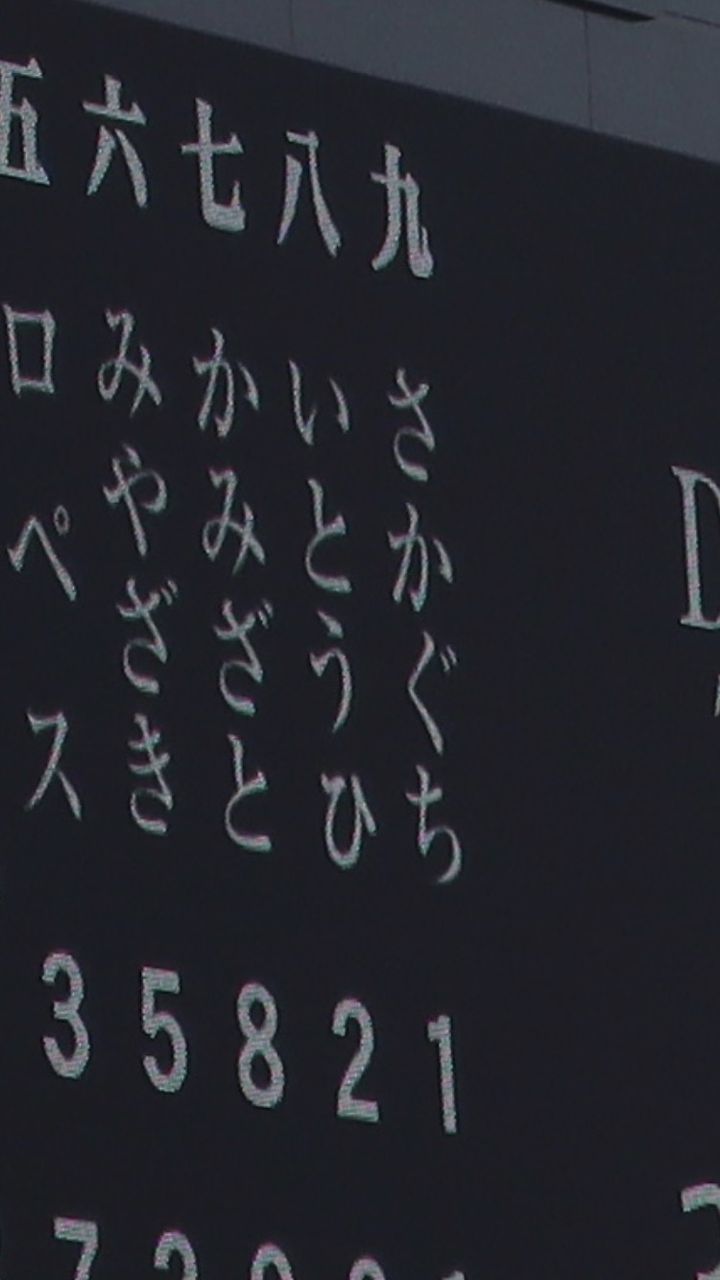 五 六 七 八 九
ロペス
みやざき
かみざと
いとうひ
さかぐち
3 5 8 2 1